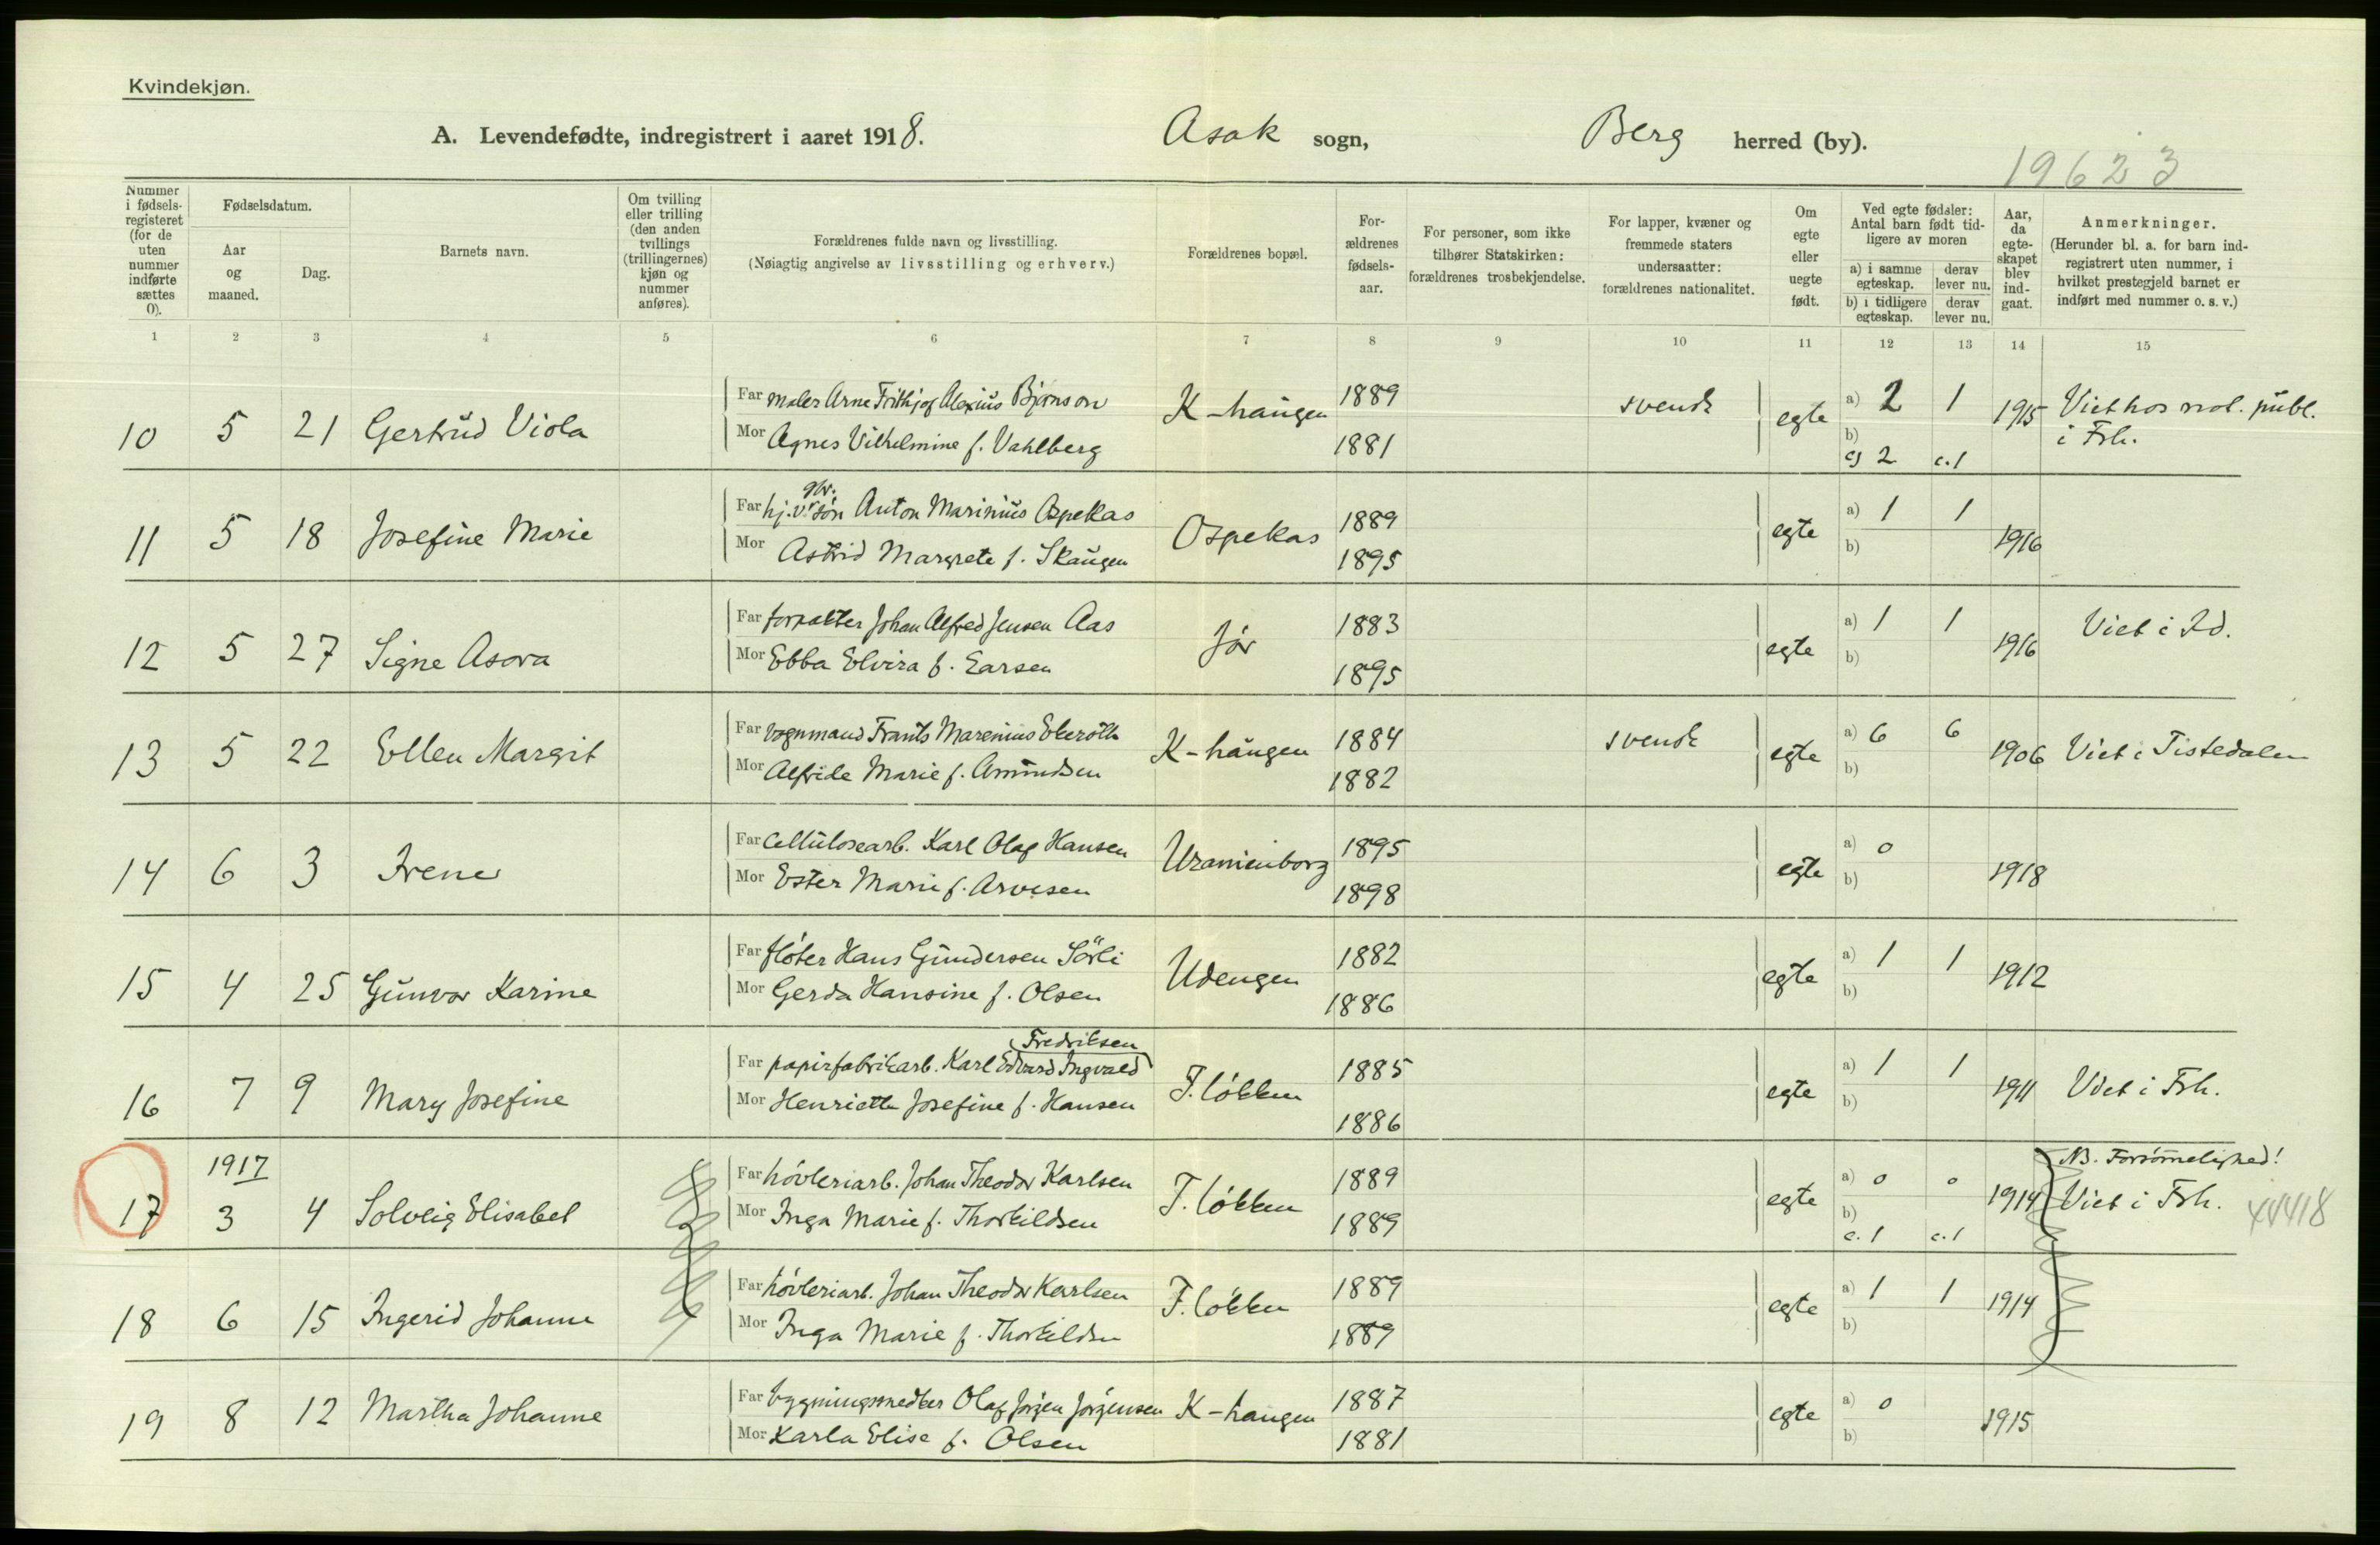 Kvindekjøn.
A. Levendefødte, indregistrert i aaret 1918. Asak sogn, Berg herred (by).
19623
Nummer i fødsels-registeret (for de uten nummer indførte sættes 0).
Fødselsdatum.
Aar og maaned.
Dag.
Barnets navn.
Om tvilling eller trilling (den anden tvillings (trillingernes) kjøn og nummer anføres).
Forældrenes fulde navn og livsstilling.
(Nøiagtig angivelse av livsstilling og erhverv.)
Forældrenes bopæl.
For-ældrenes fødsels-aar.
For personer, som ikke tilhører Statskirken: forældrenes trosbekjendelse.
For lapper, kvæner og fremmede staters undersaatter: forældrenes nationalitet.
Om egte eller uegte født.
Ved egte fødsler: Antal barn født tid-ligere av moren
a) i samme egteskap.
derav lever nu.
b) i tidligere egteskap.
derav lever nu.
Aar, da egte-skapet blev ind-gaat.
Anmerkninger.
(Herunder bl. a. for barn ind-registrert uten nummer, i hvilket prestegjeld barnet er indført med nummer o. s. v.)
1 2 3 4 5 6 7 8 9 10 11 12 13 14 15
10 5 21 Gertrud Viola
Far maler Arne Frithjof Alexius Bjørnson K-haugen 1889 svensk egte a) 2 1 1915 Viet hos not. publ.
Mor Agnes Vilhelmine f. Vahlberg 1881 b) i Frh.
c) 2 c. 1
11 5 18 Josefine Marie
gbr.
Far hj.v. søn Anton Marinius Ospekas Ospekas 1889 egte a) 1 1 1916
Mor Astrid Margrete f. Skaugen 1895 b)
12 5 27 Signe Asova
Far forpakter Johan Alfred Jensen Aas Jør 1883 egte a) 1 1 1916 Viet i Id.
Mor Ebba Elvira f. Larsen 1895 b)
13 5 22 Ellen Margit
Far vognmand Frants Marenius Ekeroth K-haugen 1884 svensk egte a) 6 6 1906 Viet i Tistedalen
Mor Alfride Marie f. Amundsen 1882 b)
14 6 3 Irene
Far Cellulosearb. Karl Olaf Hansen Uranienborg 1895 egte a) 0 1918
Mor Ester Marie f. Arvesen 1898 b)
15 4 25 Gunvor Karine
Far fløter Hans Gundersen Sørli Udengen 1882 egte a) 1 1 1912
Mor Gerda Hansine f. Olsen 1886 b)
16 7 9 Mary Josefine
Fredriksen
Far papirfabrikarb. Karl Edvard Ingvald T. løkken 1885 egte a) 1 1 1911 Viet i Frh.
Mor Henriette Josefine f. Hansen 1886 b)
1917 NB. Forsømmelighed!
17 3 4 Solveig Elisabet
Far høvleriarb. Johan Theodor Karlsen T. løkken 1889 egte a) 0 0 1914 Viet i Frh. 44418
Mor Inga Marie f. Thorkildsen 1889 b)
c. 1 c. 1
18 6 15 Ingerid Johanne
Far høvleriarb. Johan Theodor Karlsen T. løkken 1889 egte a) 1 1 1914
Mor Inga Marie f. Thorkildsen 1889 b)
19 8 12 Martha Johanne
Far bygningssnedker Olaf Jørgen Jørgensen K-haugen 1887 egte a) 0 1915
Mor Karla Elise f. Olsen 1881 b)